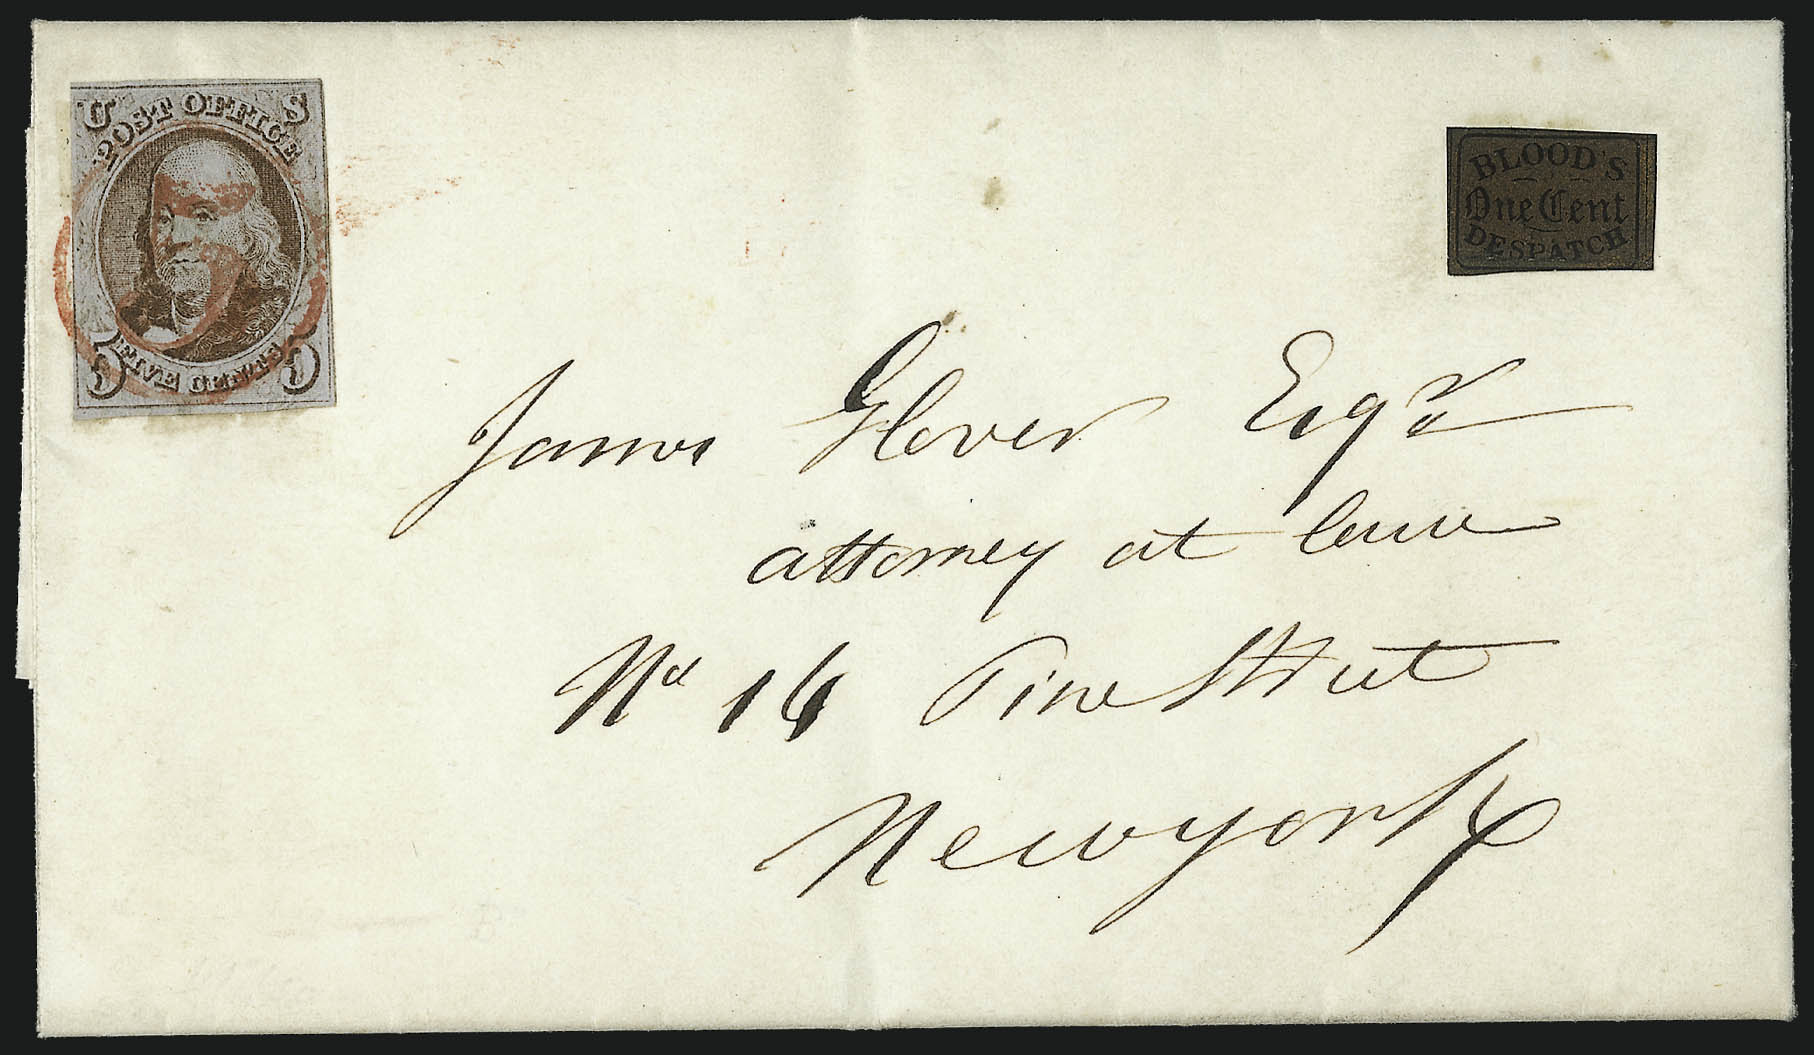 U S
POST OFFICE
5 FIVE CENTS 5
BLOOD'S
One Cent
DESPATCH
James Glover Esqr
attorney at law
No 16 Pine Street
Newyork